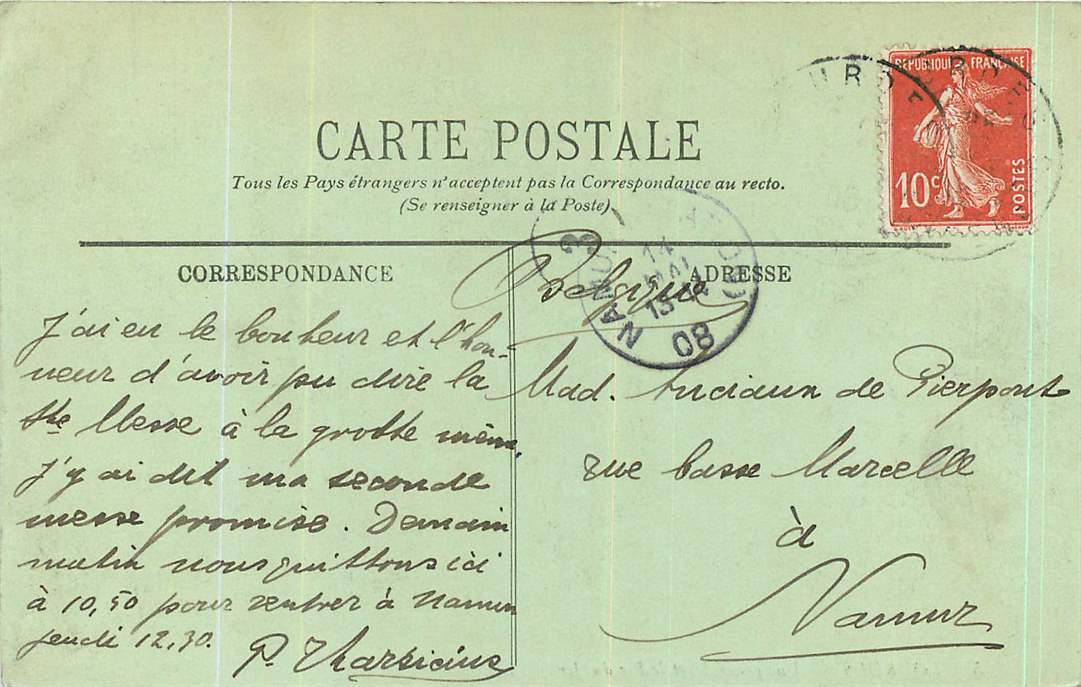 CARTE POSTALE
Tous les Pays étrangers n'acceptent pas la Correspondance au recto.
(Se renseigner à la Poste)
REPUBLIQUE FRANÇAISE
10c
POSTES
NAMUR 3
14
MAI
08
CORRESPONDANCE
J'ai eu le bonheur et l'hon-
neur d'avoir pu dire la
Ste Messe à la grotte même.
J'y ai dit ma seconde
messe promise. Demain
matin nous quittons ici
à 10,50 pour rentrer à Namur
jeudi 12,30.
P. Tharsicius
ADRESSE
Belgique
Mad. Anciaux de Pierpont
rue basse Marcelle
à
Namur